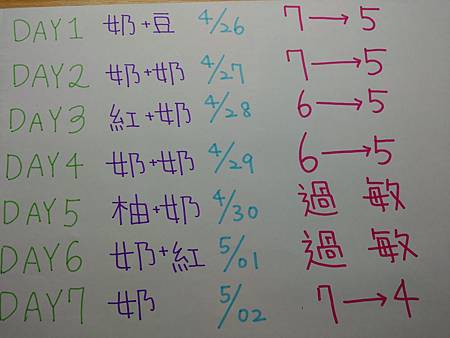 DAY1 奶+豆 4/26 7→5
DAY2 奶+奶 4/27 7→5
DAY3 紅+奶 4/28 6→5
DAY4 奶+奶 4/29 6→5
DAY5 柚+奶 4/30 過敏
DAY6 奶+紅 5/01 過敏
DAY7 奶 5/02 7→4